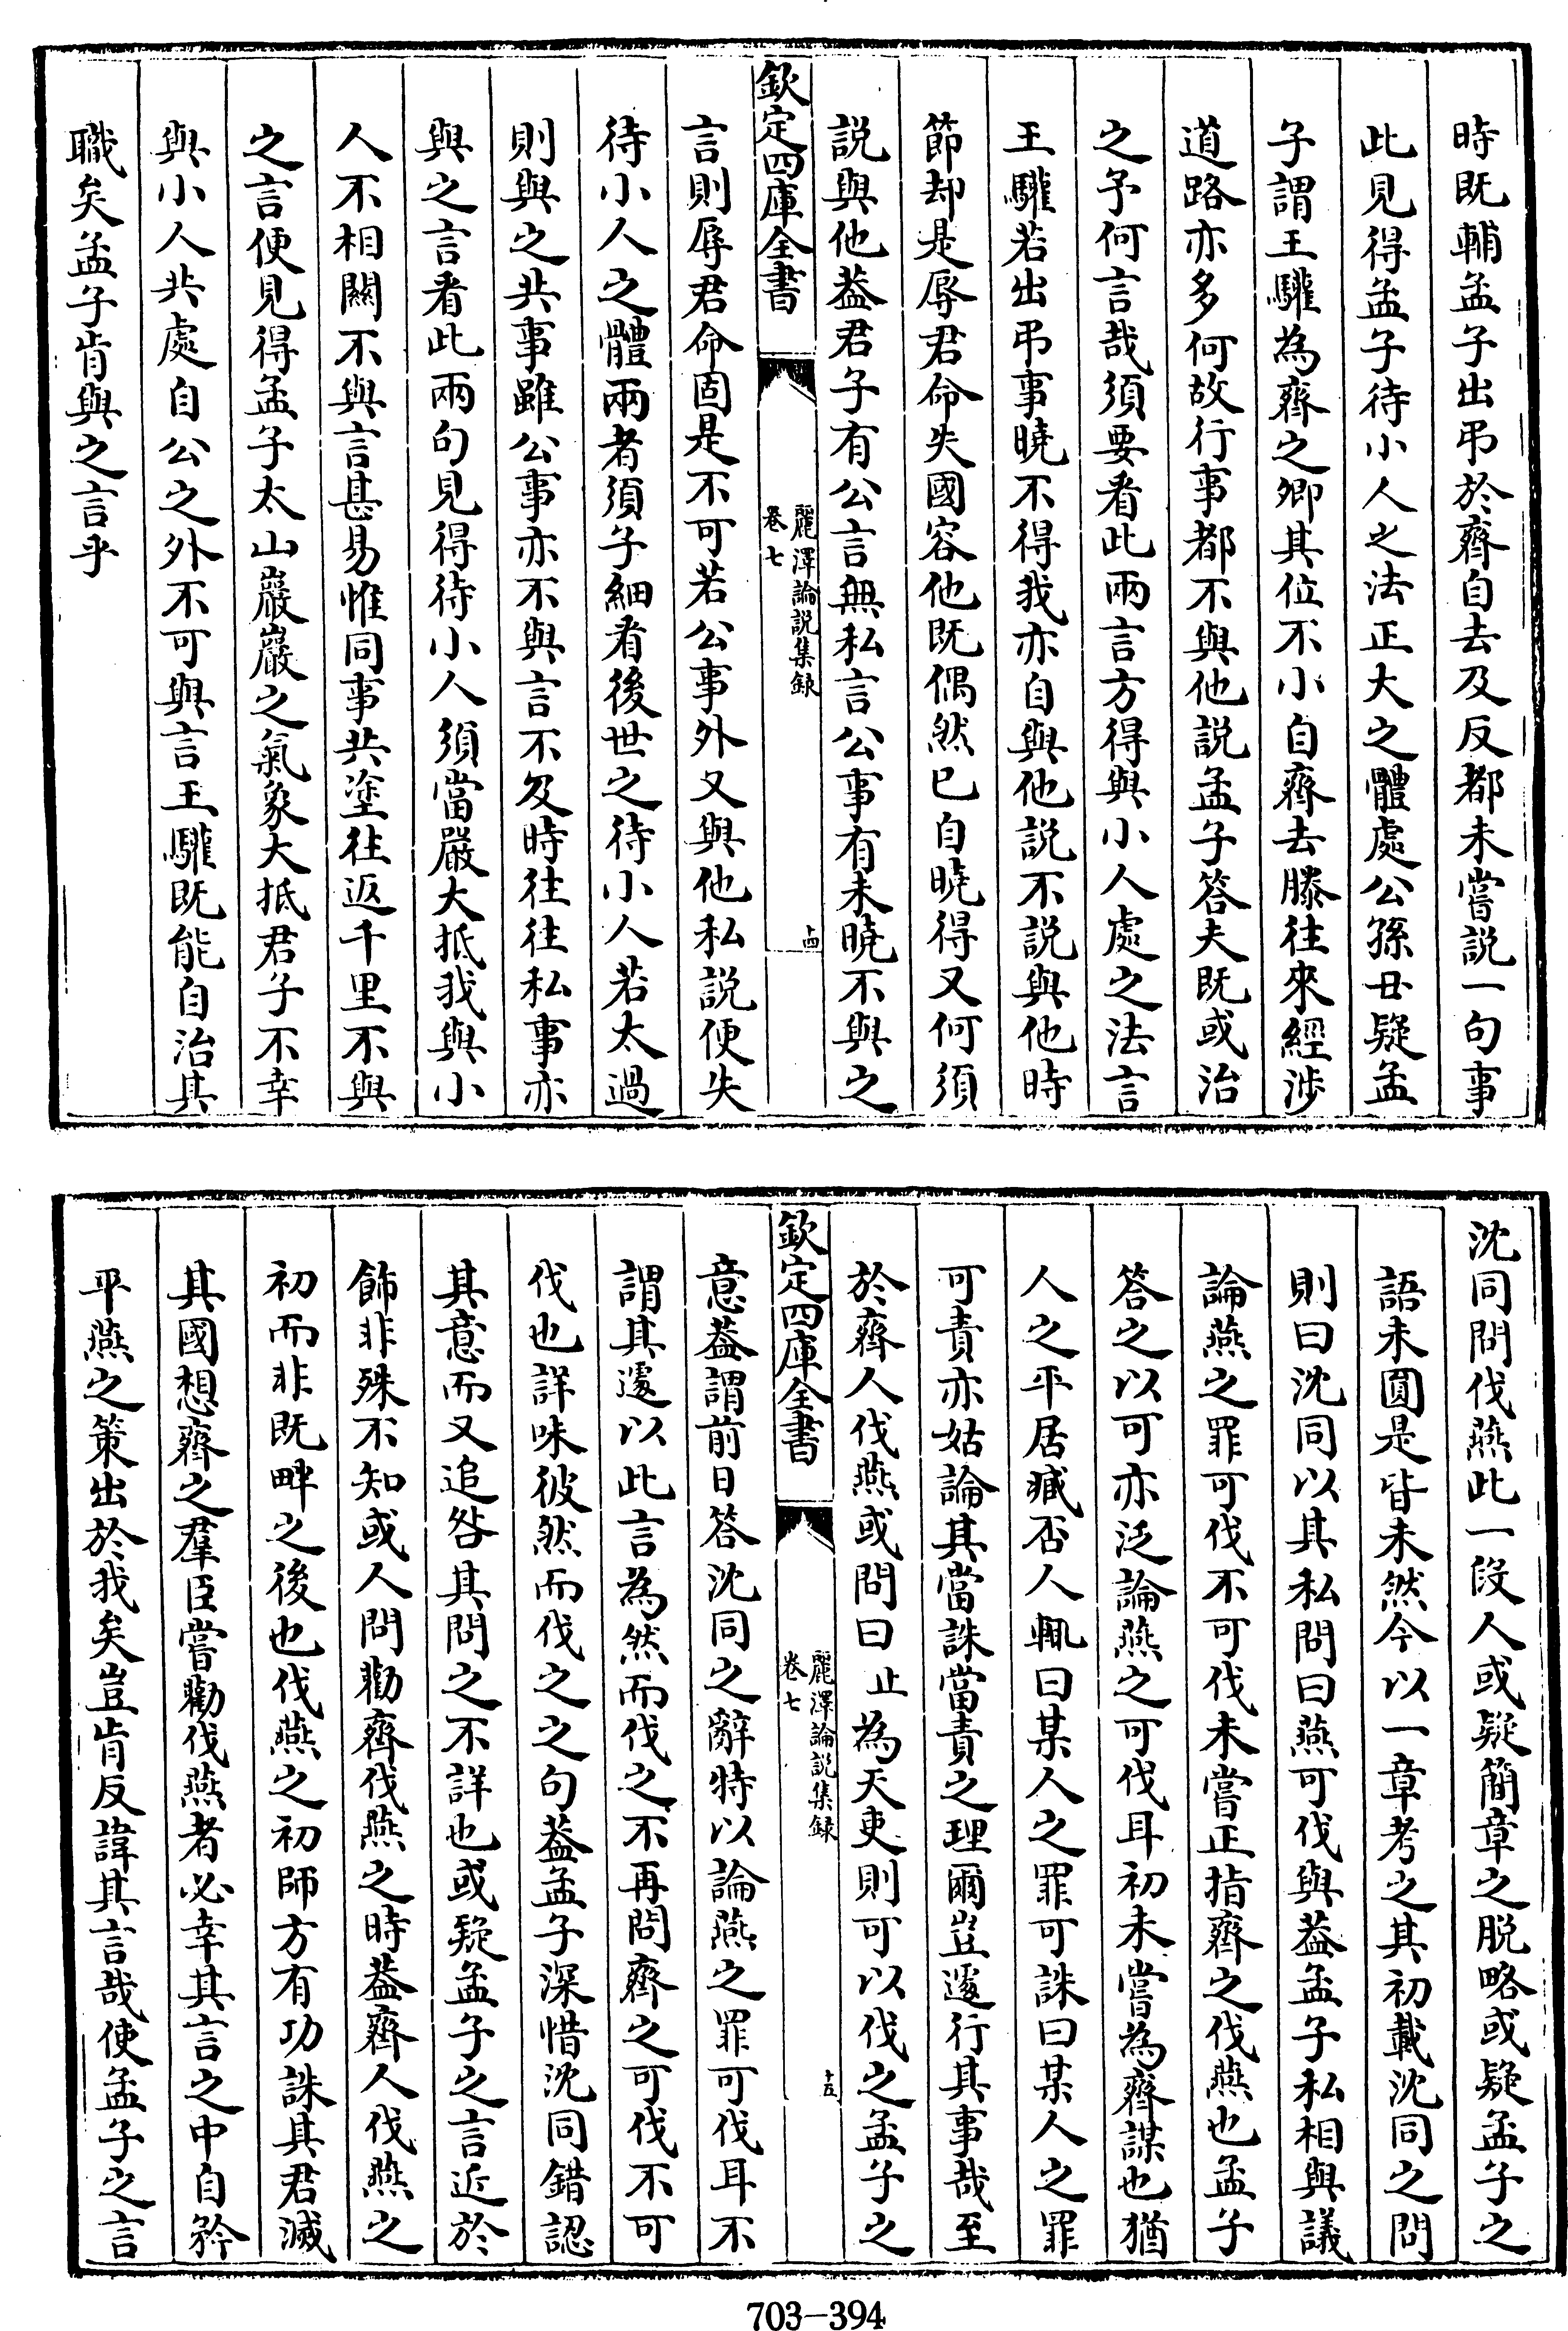 時既輔孟子出弔於齊自去及反都未嘗説一句事
此見得孟子待小人之法正大之體處公孫丑疑孟
子謂王驩為齊之卿其位不小自齊去滕往來經涉
道路亦多何故行事都不與他説孟子答夫既或治
之予何言哉須要看此兩言方得與小人處之法言
王驩若出弔事曉不得我亦自與他説不説與他時
節却是辱君命失國容他既偶然已自曉得又何須
説與他葢君子有公言無私言公事有未曉不與之
欽定四庫全書
麗澤論説集録
卷七
十四
言則辱君命固是不可若公事外又與他私説便失
待小人之體兩者須子細看後世之待小人若太過
則與之共事雖公事亦不與言不及時往往私事亦
與之言看此兩句見得待小人須當嚴大抵我與小
人不相關不與言甚易惟同事共塗往返千里不與
之言便見得孟子太山巖巖之氣象大抵君子不幸
與小人共處自公之外不可與言王驩既能自治其
職矣孟子肯與之言乎
沈同問伐燕此一段人或疑簡章之脱略或疑孟子之
語未圓是皆未然今以一章考之其初載沈同之問
則曰沈同以其私問曰燕可伐與葢孟子私相與議
論燕之罪可伐不可伐未嘗正指齊之伐燕也孟子
答之以可亦泛論燕之可伐耳初未嘗為齊謀也猶
人之平居臧否人輒曰某人之罪可誅曰某人之罪
可責亦姑論其當誅當責之理爾豈遽行其事哉至
於齊人伐燕或問曰止為天吏則可以伐之孟子之
欽定四庫全書
麗澤論説集録
卷七
十五
意葢謂前日答沈同之辭特以論燕之罪可伐耳不
謂其遽以此言為然而伐之不再問齊之可伐不可
伐也詳味彼然而伐之之句葢孟子深惜沈同錯認
其意而又追咎其問之不詳也或疑孟子之言近於
飾非殊不知或人問勸齊伐燕之時葢齊人伐燕之
初而非既畔之後也伐燕之初師方有功誅其君滅
其國想齊之羣臣嘗勸伐燕者必幸其言之中自矜
平燕之策出於我矣豈肯反諱其言哉使孟子之言
703-394